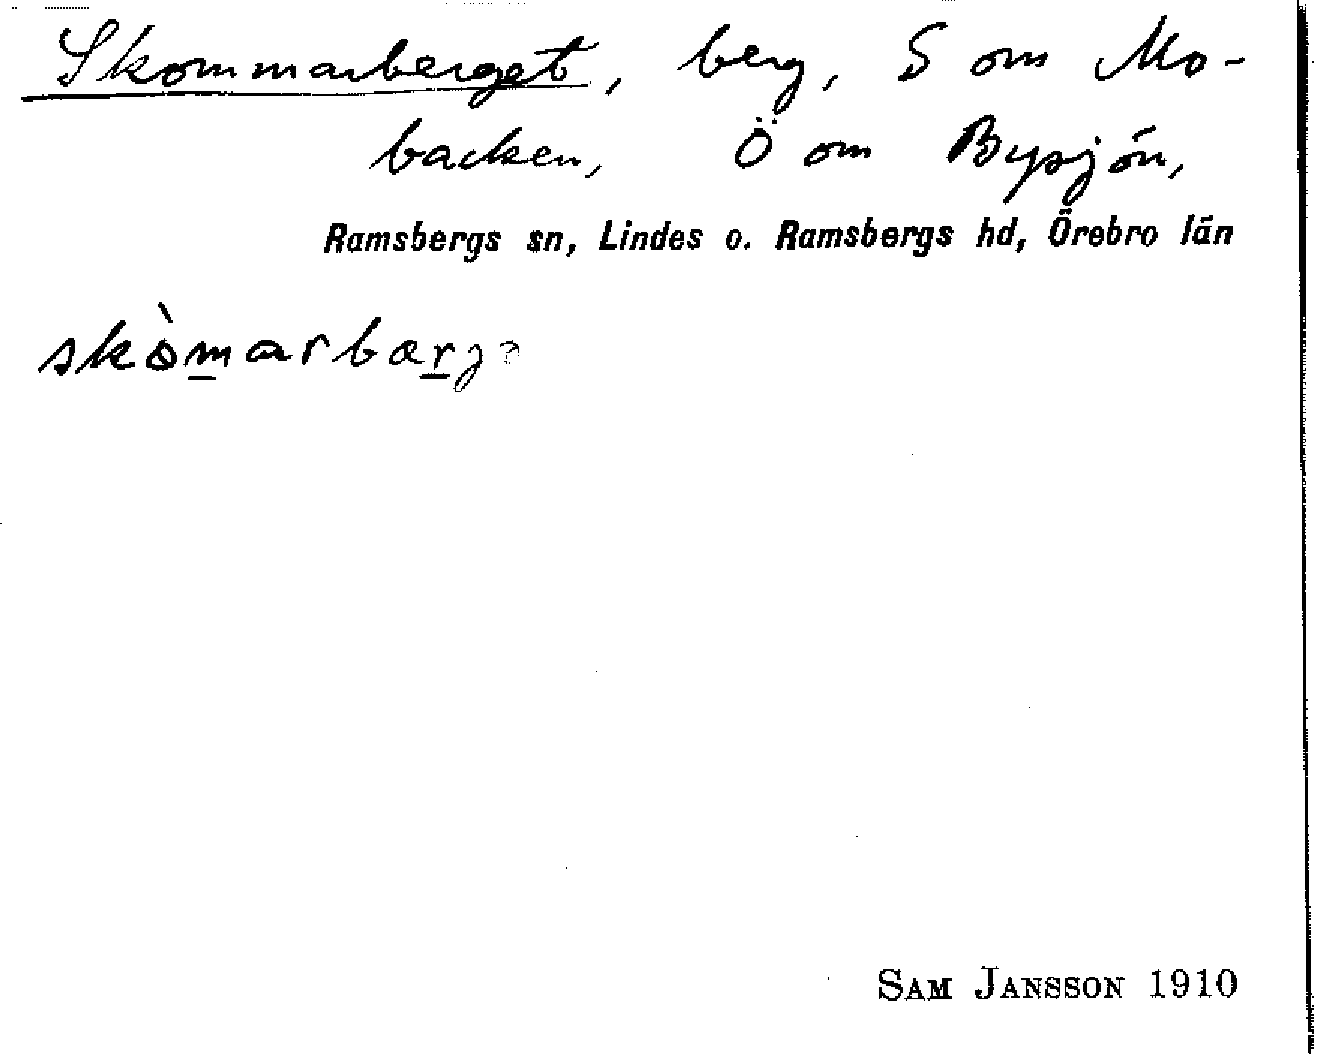 Skommarberget, berg, S om Mo-
backen, Ö om Bysjön,
Ramsbergs sn, Lindes o. Ramsbergs hd, Örebro län
skòmarbærjə
SAM JANSSON 1910